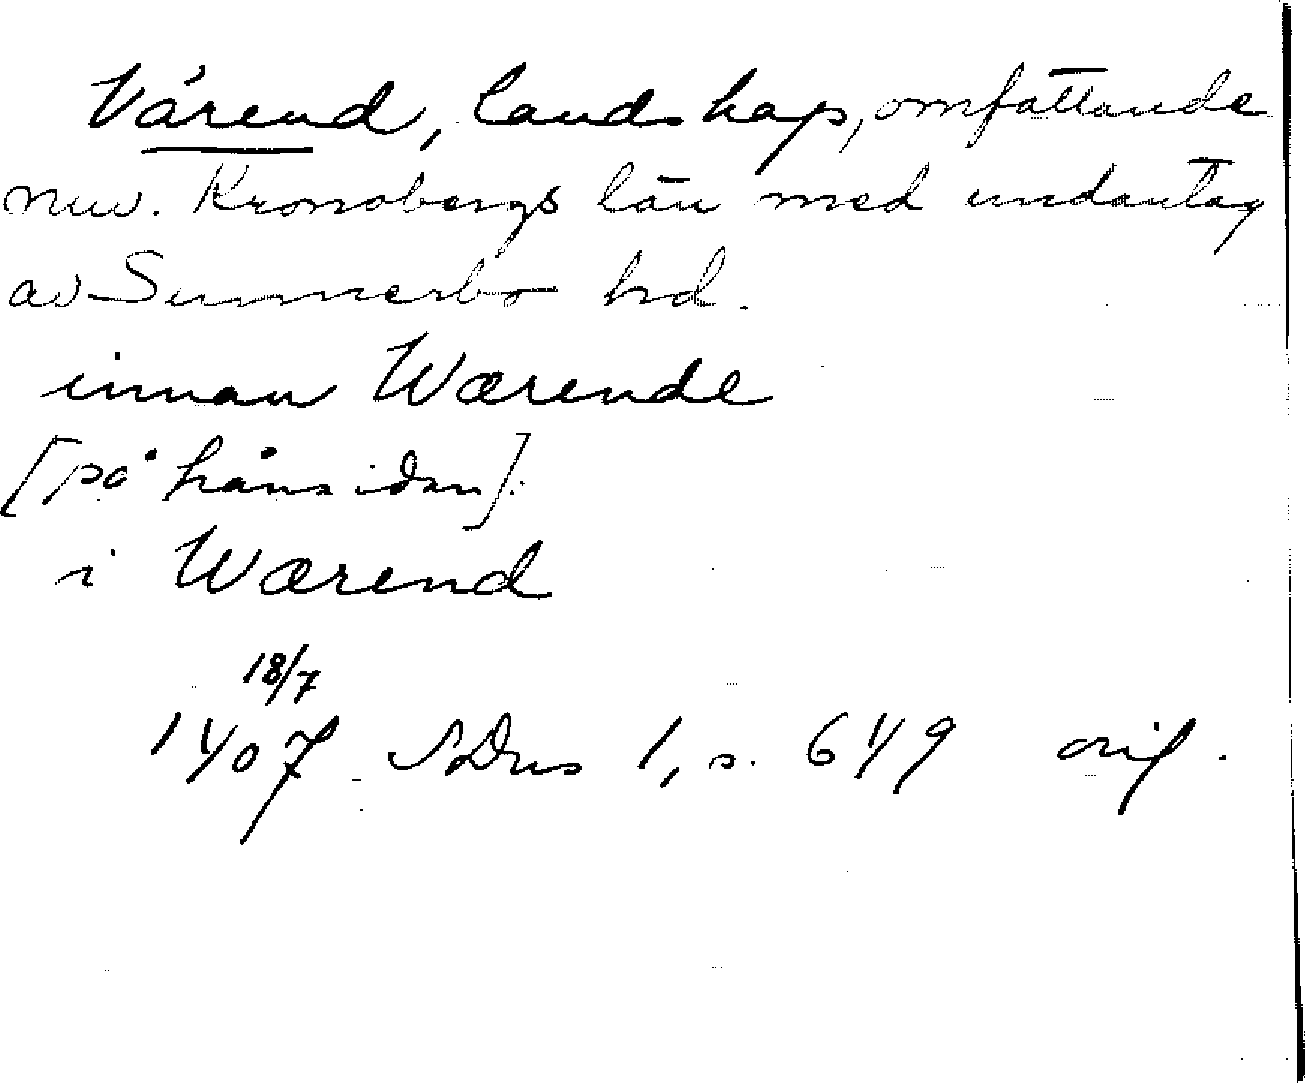 Värend, landskap, omfattande
nuv. Kronobergs län med undantag
av Sunnerbo hd.
innan Wærende
[på frånsidan]:
i Wærend
18/7
1407 SDns 1, s. 649 orig.